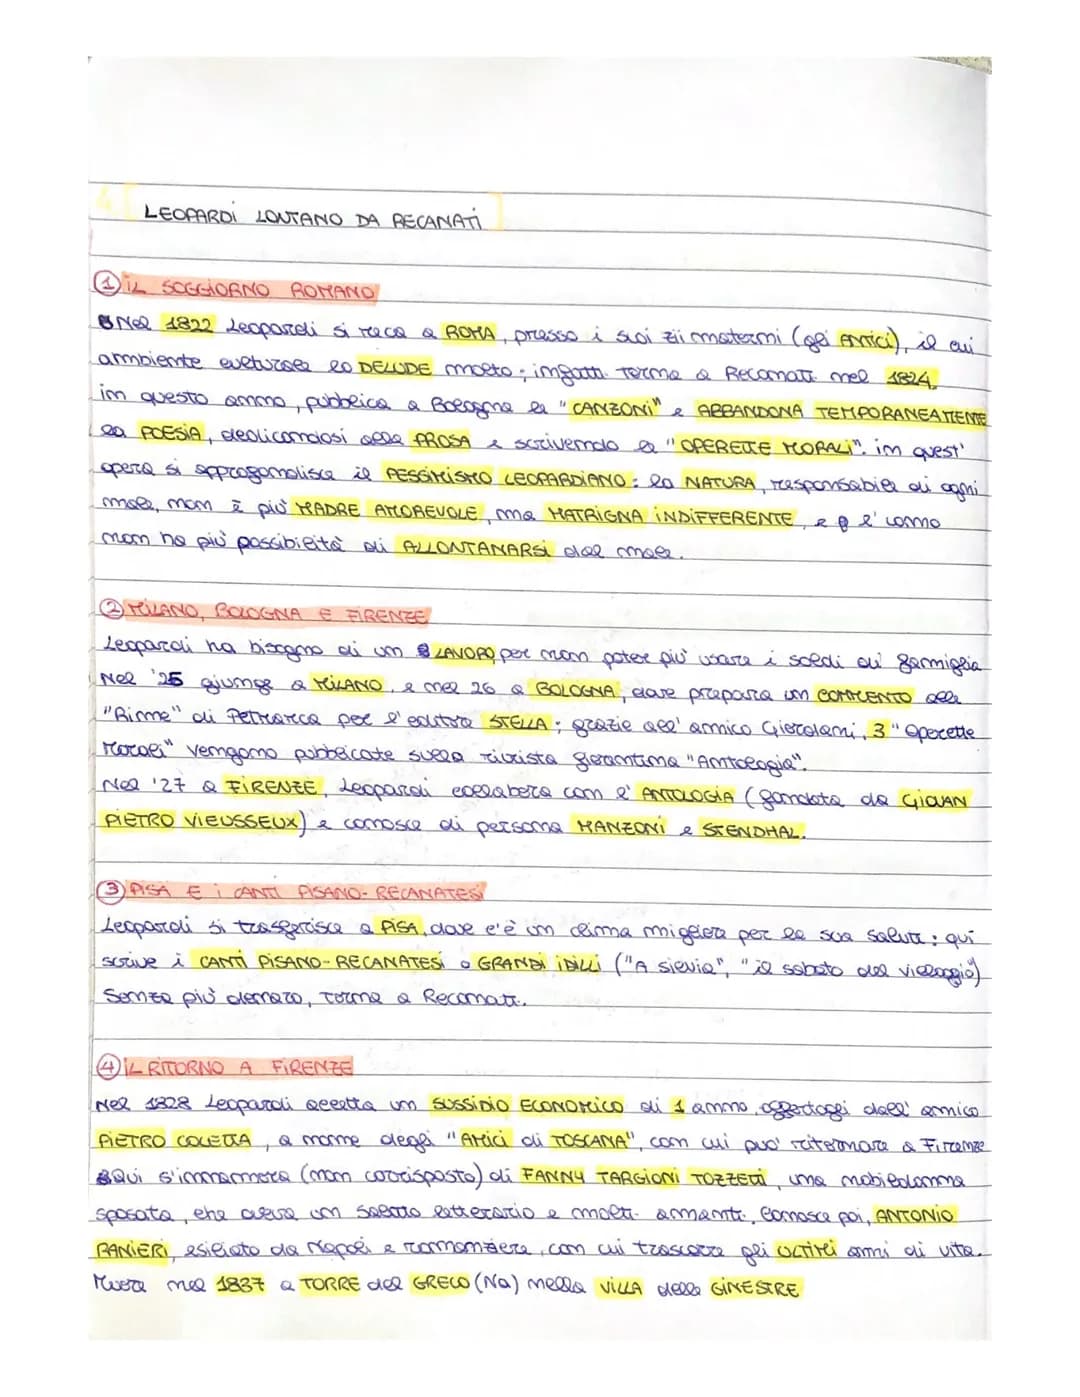 4
LEOPARDI LONTANO DA RECANATI
1 IL SOGGIORNO ROMANO
Nel 1822 Leopardi si reca a ROMA, presso i suoi zii materni (gli ANTICI), il cui
ambiente culturale lo DELUDE molto; infatti torna a Recanati nel 1824.
in questo anno, pubblica a Bologna le "CANZONI" e ABBANDONA TEMPORANEAMENTE
la POESIA, dedicandosi alla PROSA e scrivendo le "OPERETTE MORALI". in quest'
opera si approfondisce il PESSIMISMO LEOPARDIANO: la NATURA, responsabile di ogni
male, non è più MADRE AMOREVOLE, ma MATRIGNA INDIFFERENTE, e l'uomo
non ha più possibilità di ALLONTANARSI dal male.
2 MILANO, BOLOGNA E FIRENZE
Leopardi ha bisogno di un LAVORO per non poter più usare i soldi di famiglia
Nel '25 giunge a MILANO, e nel 26 a BOLOGNA, dove prepara un COMMENTO alle
"Rime" di Petrarca per l'editore STELLA; grazie all'amico Giordani, 3 "Operette
Morali" vengono pubblicate sulla rivista fiorentina "Antologia".
Nel '27 a FIRENZE, Leopardi collabora con l'ANTOLOGIA (fondata da GIOVAN
PIETRO VIEUSSEUX) e conosce di persona MANZONI e STENDHAL.
3 PISA E i CANTI PISANO-RECANATESI
Leopardi si trasferisce a PISA, dove c'è un clima migliore per la sua salute; qui
scrive i CANTI PISANO-RECANATESI o GRANDI IDILLI ("A silvia", "il sabato del villaggio")
Senza più denaro, torna a Recanati.
4 IL RITORNO A FIRENZE
Nel 1828 Leopardi accetta un SUSSIDIO ECONOMICO di 1 anno, offertogli dall'amico
PIETRO COLETTA, a nome degli "AMICI di TOSCANA", con cui può ritornare a Firenze
Qui s'innamora (non corrisposto) di FANNY TARGIONI TOZZETTI, una nobildonna
sposata, che aveva un salotto letterario e molti amanti. Conosce poi, ANTONIO
RANIERI, esiliato da Napoli e romanziere, con cui trascorre gli ULTIMI anni di vita.
Muore nel 1837 a TORRE del GRECO (Na) nella VILLA delle GINESTRE